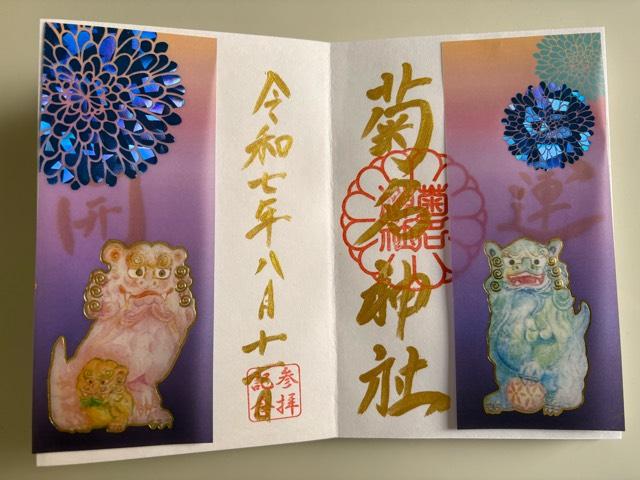 運
菊名神社
菊名神社
令和七年八月十一日
参拝記念
開